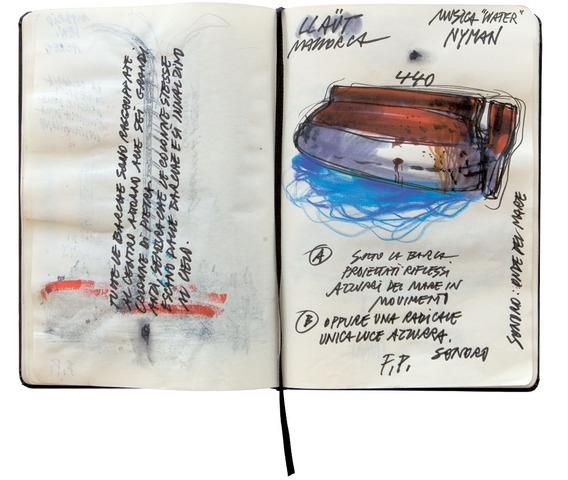 TUTTE LE BARCHE SONO RAGGRUPPATE
AL CENTRO ATTORNO ALLE SEI GRANDI
COLONNE DI PIETRA
SEMBRA CHE LE COLONNE STESSE
ESCANO DALLE BARCHE E SI INNALZINO
AL CIELO.
LLAÜT
MALLORCA
MUSICA "WATER"
NYMAN
440
A SOTTO LA BARCA
PROIETTATI RIFLESSI
AZZURRI DEL MARE IN
MOVIMENTO
B OPPURE UNA RADICALE
UNICA LUCE AZZURRA.
F.P. SONORO
ONDE DEL MARE